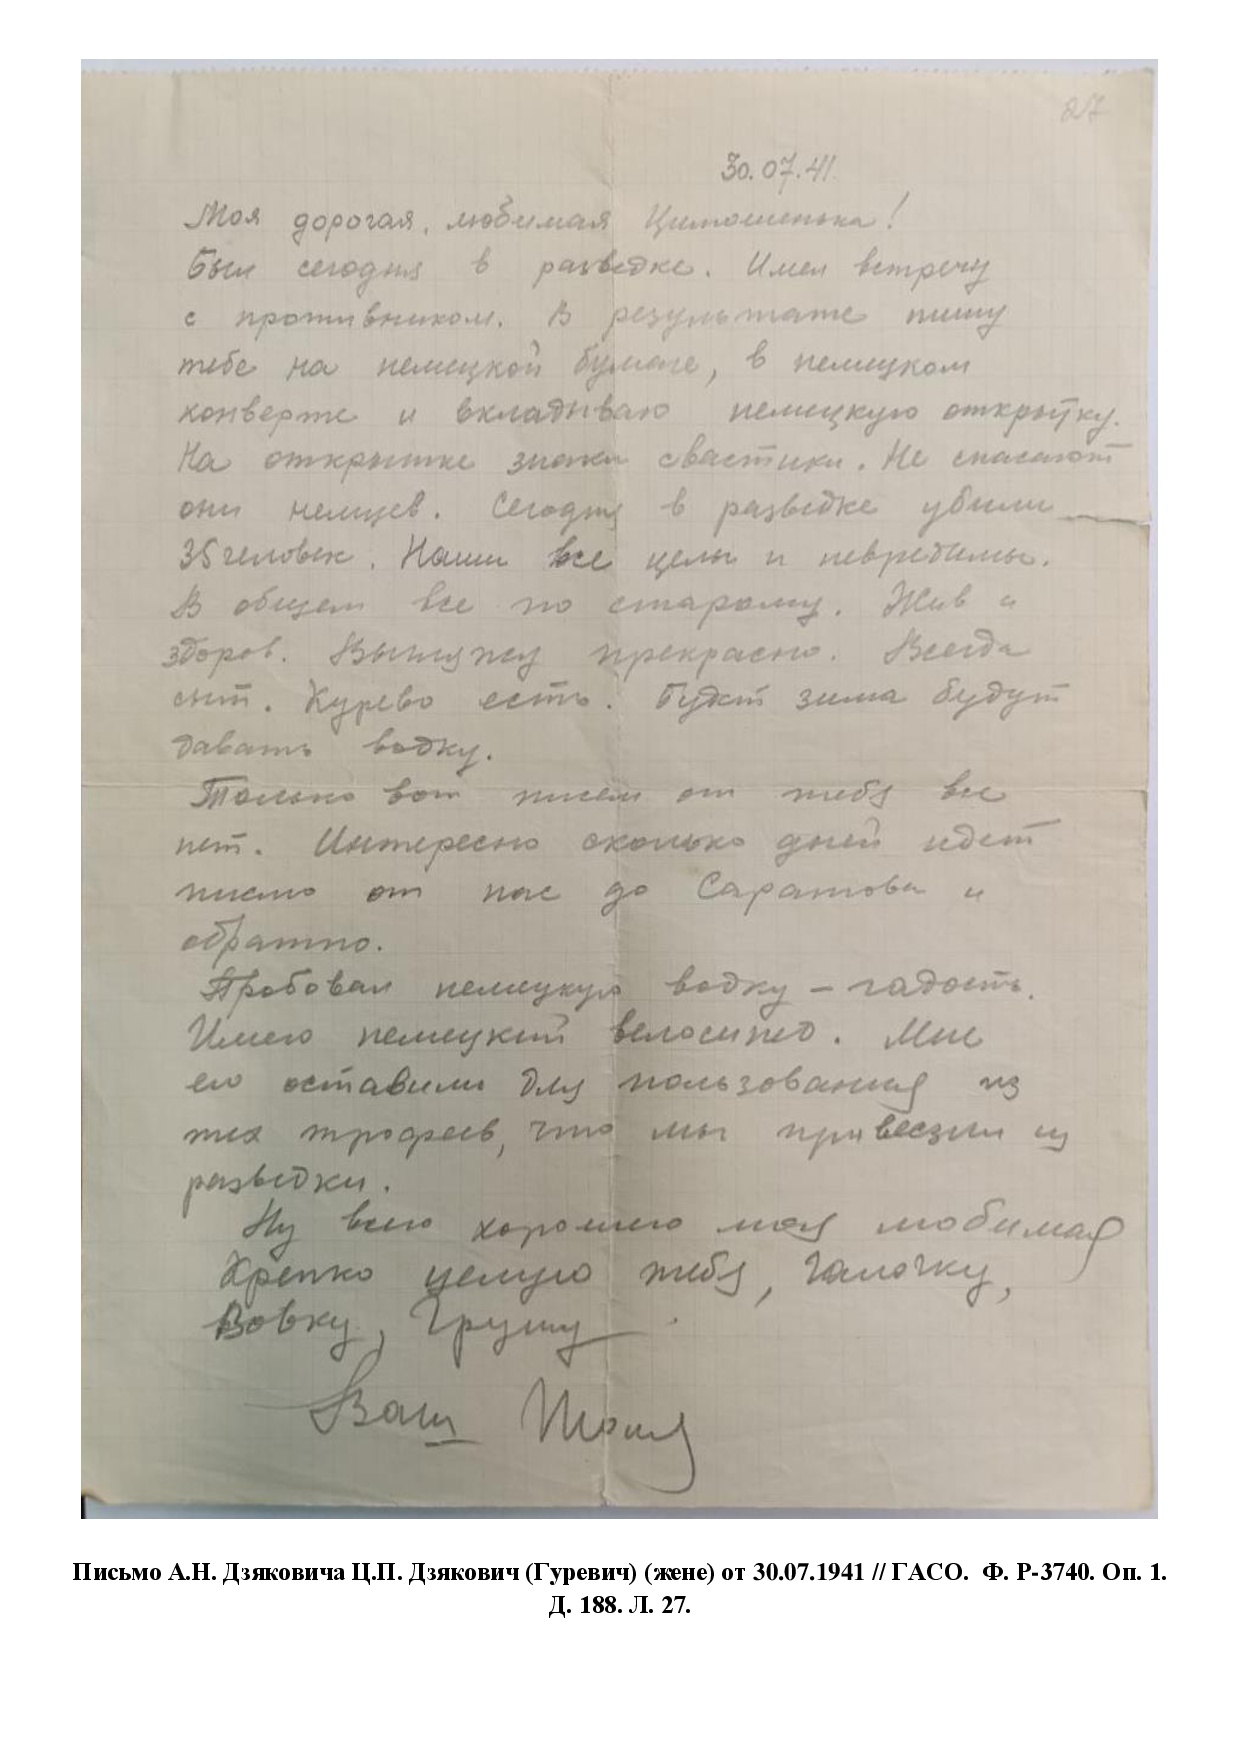 27
30.07.41.
Моя дорогая, любимая Цимошенька!
Был сегодня в разведке. Имел встречу
с противником. В результате пишу
тебе на немецкой бумаге, в немецком
конверте и вкладываю немецкую открытку.
На открытке знаки свастики. Не спасают
они немцев. Сегодня в разведке убили
35 человек. Наши все целы и невредимы.
В общем все по старому. Жив и
здоров. Выгляжу прекрасно. Всегда
сыт. Курево есть. Будет зима будут
давать водку.
Только вот писем от тебя все
нет. Интересно сколько дней идет
письмо от нас до Саратова и
обратно.
Пробовал немецкую водку – гадость.
Имею немецкий велосипед. Мне
его оставили для пользования из
тех трофеев, что мы привезли из
разведки.
Ну всего хорошего моя любимая
Крепко целую тебя, Галочку,
Вовку, Грушу
Ваш Толя
Письмо А.Н. Дзяковича Ц.П. Дзякович (Гуревич) (жене) от 30.07.1941 // ГАСО. Ф. Р-3740. Оп. 1.
Д. 188. Л. 27.